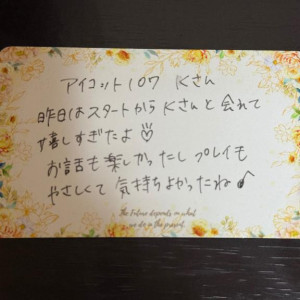 アイコット107 Kさん
昨日はスタートからKさんと会えて
嬉しすぎたよ♡
お話も楽しかったし プレイも
やさしくて 気持ちよかったね♪
The Future depends on what
we do in the present.